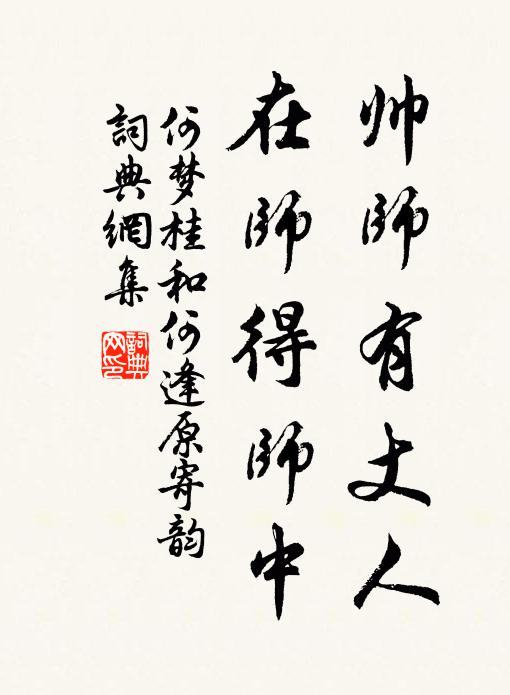 帅师有丈人
在师得师中
何梦桂和何逢原寄韵
詞典網集
詞典網印